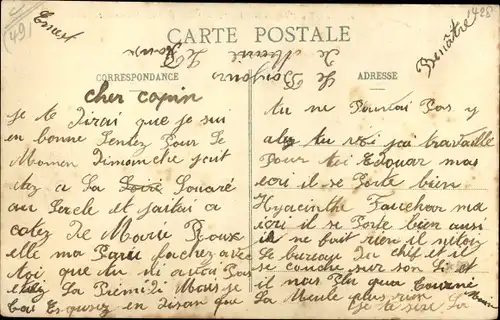 (49)
Ernest
428
Benâtre
CARTE POSTALE
CORRESPONDANCE
ADRESSE
Le Bonjour
cher copin
je te Dirai que je sui
en bonne Sentez Pour Le
Momen Dimanche jait
etez a La Loire Souaré
au Sercle et jaitai a
cotez De Marie Roux
elle ma Paru fachez avec
toi que tu ni avai Pas
etez La Premidi Mais je
Esquzez en Disan que
tu ne Pourai Pas y
tu voi jai travaille
Pour toi Edouar mas
ecri il se Porte bien
Hyacinthe Fauchou ma
ecri il se Porte bien ausi
il ne fait rien il nitoy
Le bureau Du chef et il
se couche sur son Li et
il nas Plu qua tourné
La Meule plus rien
je te Di La